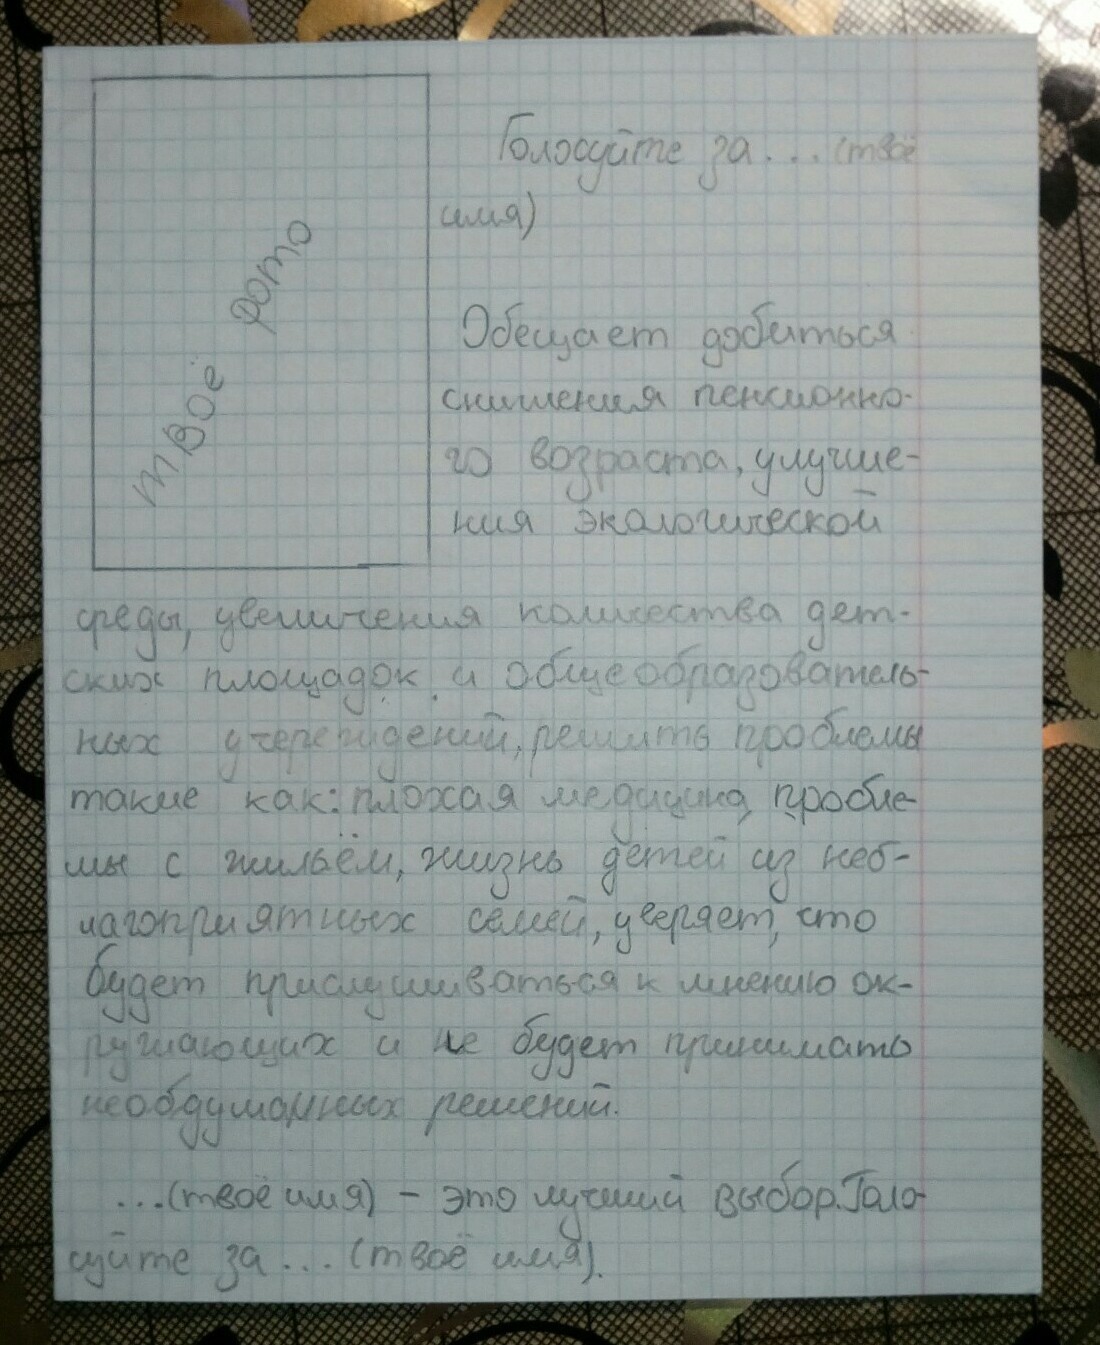 твоё фото
Голосуйте за... (твоё
имя)
Обещает добиться
снижения пенсионно-
го возраста, улучше-
ния экологической
среды, увеличения количества дет-
ских площадок и общеобразователь-
ных учереждений, решить проблемы
такие как: плохая медицина, пробле-
мы с жильём, жизнь детей из неб-
лагоприятных семей, уверяет, что
будет прислушиваться к мнению ок-
ружающих и не будет принимать
необдуманных решений.
...(твоё имя) – это лучший выбор. Голо-
суйте за ... (твоё имя).